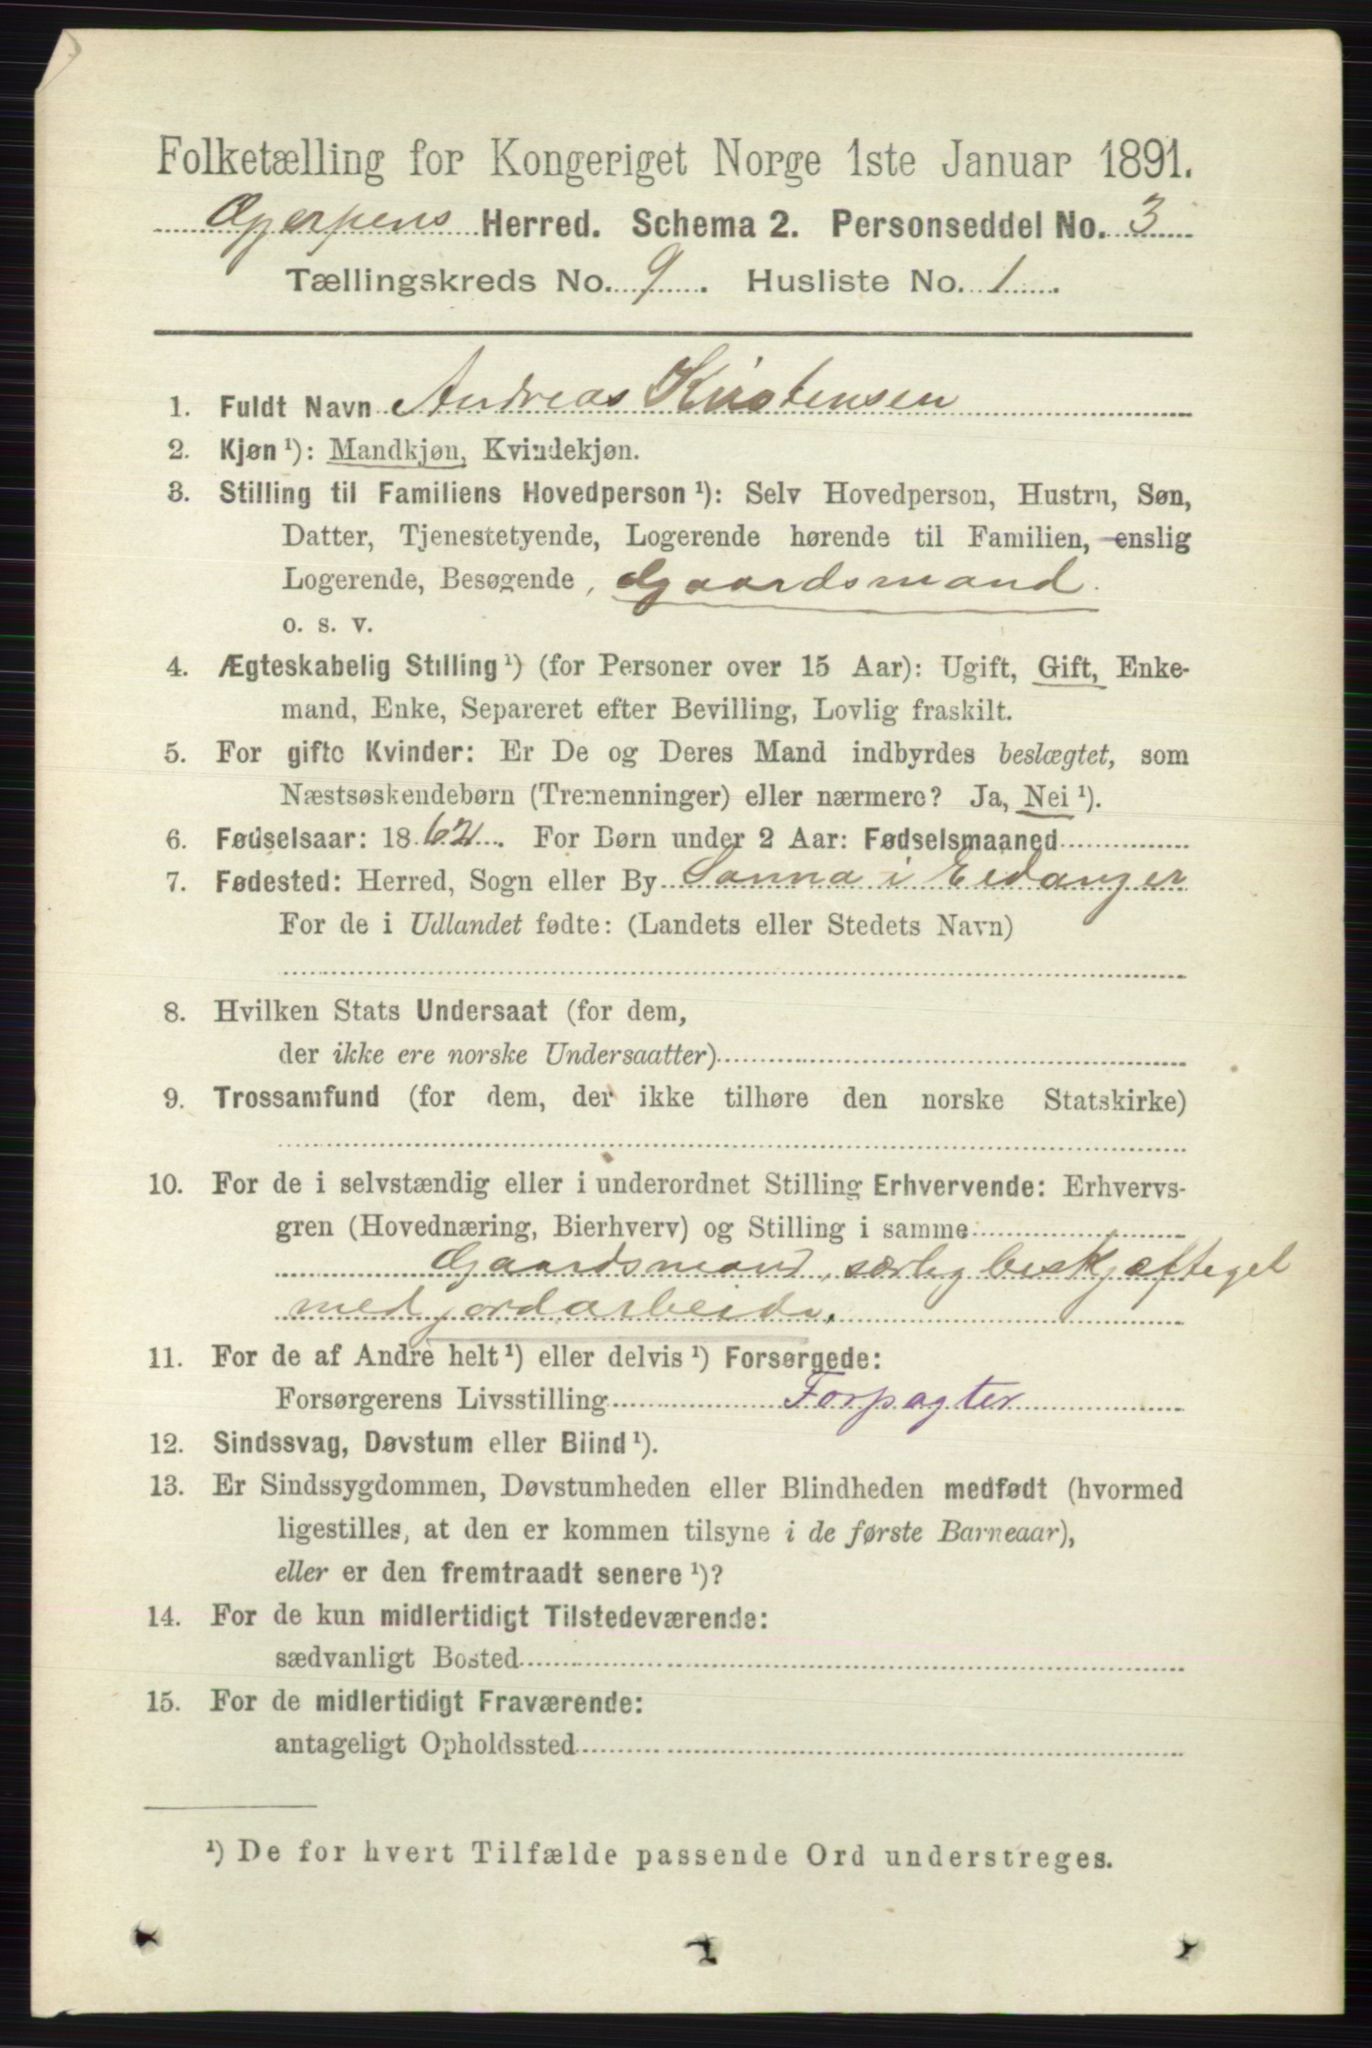 Folketælling for Kongeriget Norge 1ste Januar 1891.
Gjerpens Herred. Schema 2. Personseddel No. 3
Tællingskreds No. 9. Husliste No. 1.
1. Fuldt Navn Andreas Kirstensen
2. Kjøn¹): Mandkjøn, Kvindekjøn.
3. Stilling til Familiens Hovedperson¹): Selv Hovedperson, Hustru, Søn,
Datter, Tjenestetyende, Logerende hørende til Familien, enslig
Logerende, Besøgende, Gaardsmand.
o. s. v.
4. Ægteskabelig Stilling¹) (for Personer over 15 Aar): Ugift, Gift, Enke-
mand, Enke, Separeret efter Bevilling, Lovlig fraskilt.
5. For gifte Kvinder: Er De og Deres Mand indbyrdes beslægtet, som
Næstsøskendebørn (Tremenninger) eller nærmere? Ja, Nei¹).
6. Fødselsaar: 1862. For Børn under 2 Aar: Fødselsmaaned
7. Fødested: Herred, Sogn eller By i Eidanger
For de i Udlandet fødte: (Landets eller Stedets Navn)
8. Hvilken Stats Undersaat (for dem,
der ikke ere norske Undersaatter)
9. Trossamfund (for dem, der ikke tilhøre den norske Statskirke)
10. For de i selvstændig eller i underordnet Stilling Erhvervende: Erhvervs-
gren (Hovednæring, Bierhverv) og Stilling i samme
Gaardsmand, særlig beskjæftiget
med jordarbeide.
11. For de af Andre helt¹) eller delvis¹) Forsørgede:
Forsørgerens Livsstilling Forpagter
12. Sindssvag, Døvstum eller Blind¹).
13. Er Sindssygdommen, Døvstumheden eller Blindheden medfødt (hvormed
ligestilles, at den er kommen tilsyne i de første Barneaar),
eller er den fremtraadt senere¹)?
14. For de kun midlertidigt Tilstedeværende:
sædvanligt Bosted
15. For de midlertidigt Fraværende:
antageligt Opholdssted
¹) De for hvert Tilfælde passende Ord understreges.